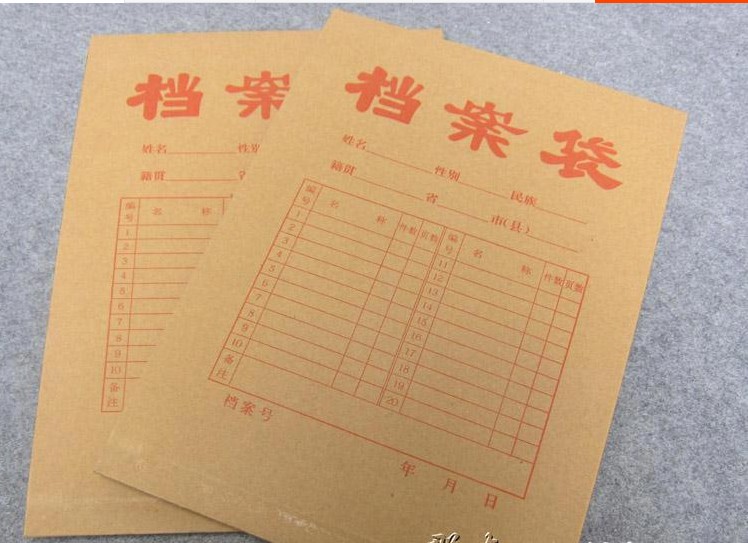 档案
姓名 性别
籍贯
编号 名 称
1
2
3
4
5
6
7
8
9
10
备注
档案袋
姓名 性别 民族
籍贯 省 市(县)
编号 名 称 件数 页数 编号 名 称 件数 页数
1 11
2 12
3 13
4 14
5 15
6 16
7 17
8 18
9 19
10 20
备注
档案号
年 月 日